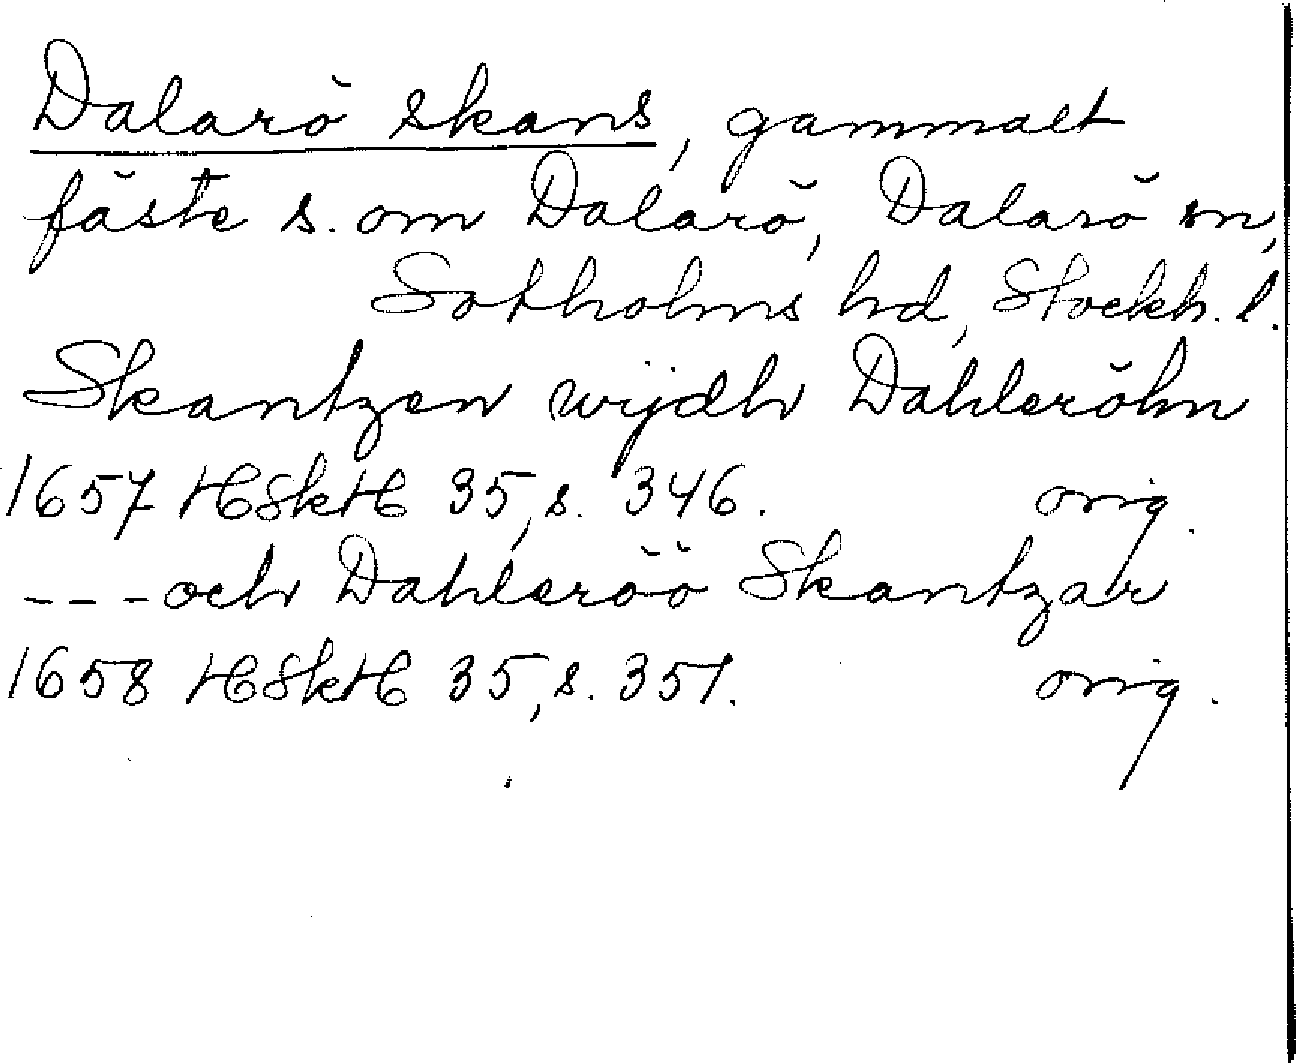 Dalarö skans, gammalt
fäste s. om Dalarö, Dalarö sn,
Sotholms hd, Stockh. l.
Skantzen wijdh Dahleröhn
1657 HSkH 35, s. 346. orig.
--- och Dahleröö Skantzar
1658 HSkH 35, s. 351. orig.